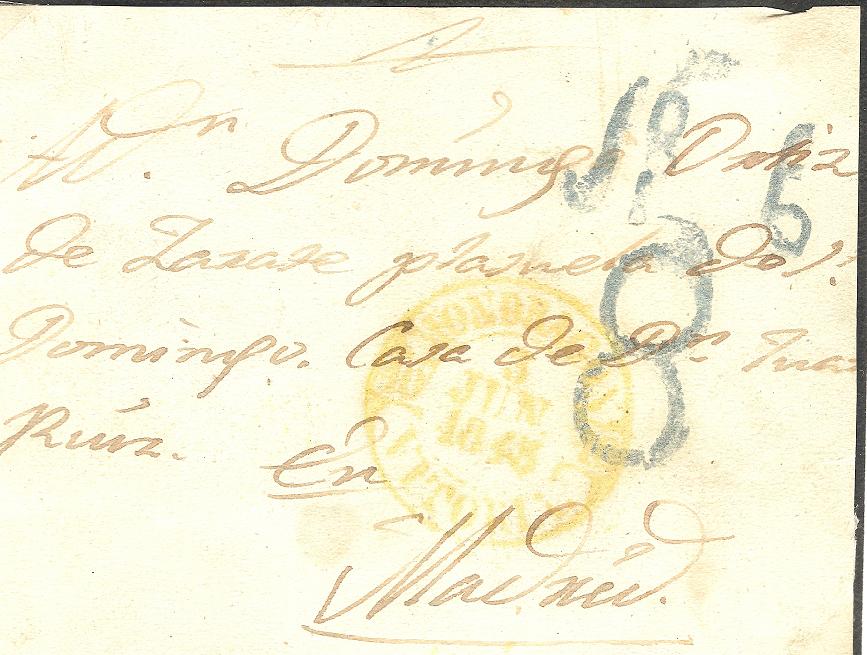 A Dn. Domingo Ortiz
de Zarate plazuela de Sto.
Domingo. Casa de Dn. Juan
Ruiz.
En
Madrid.
3
JUN
1845
8